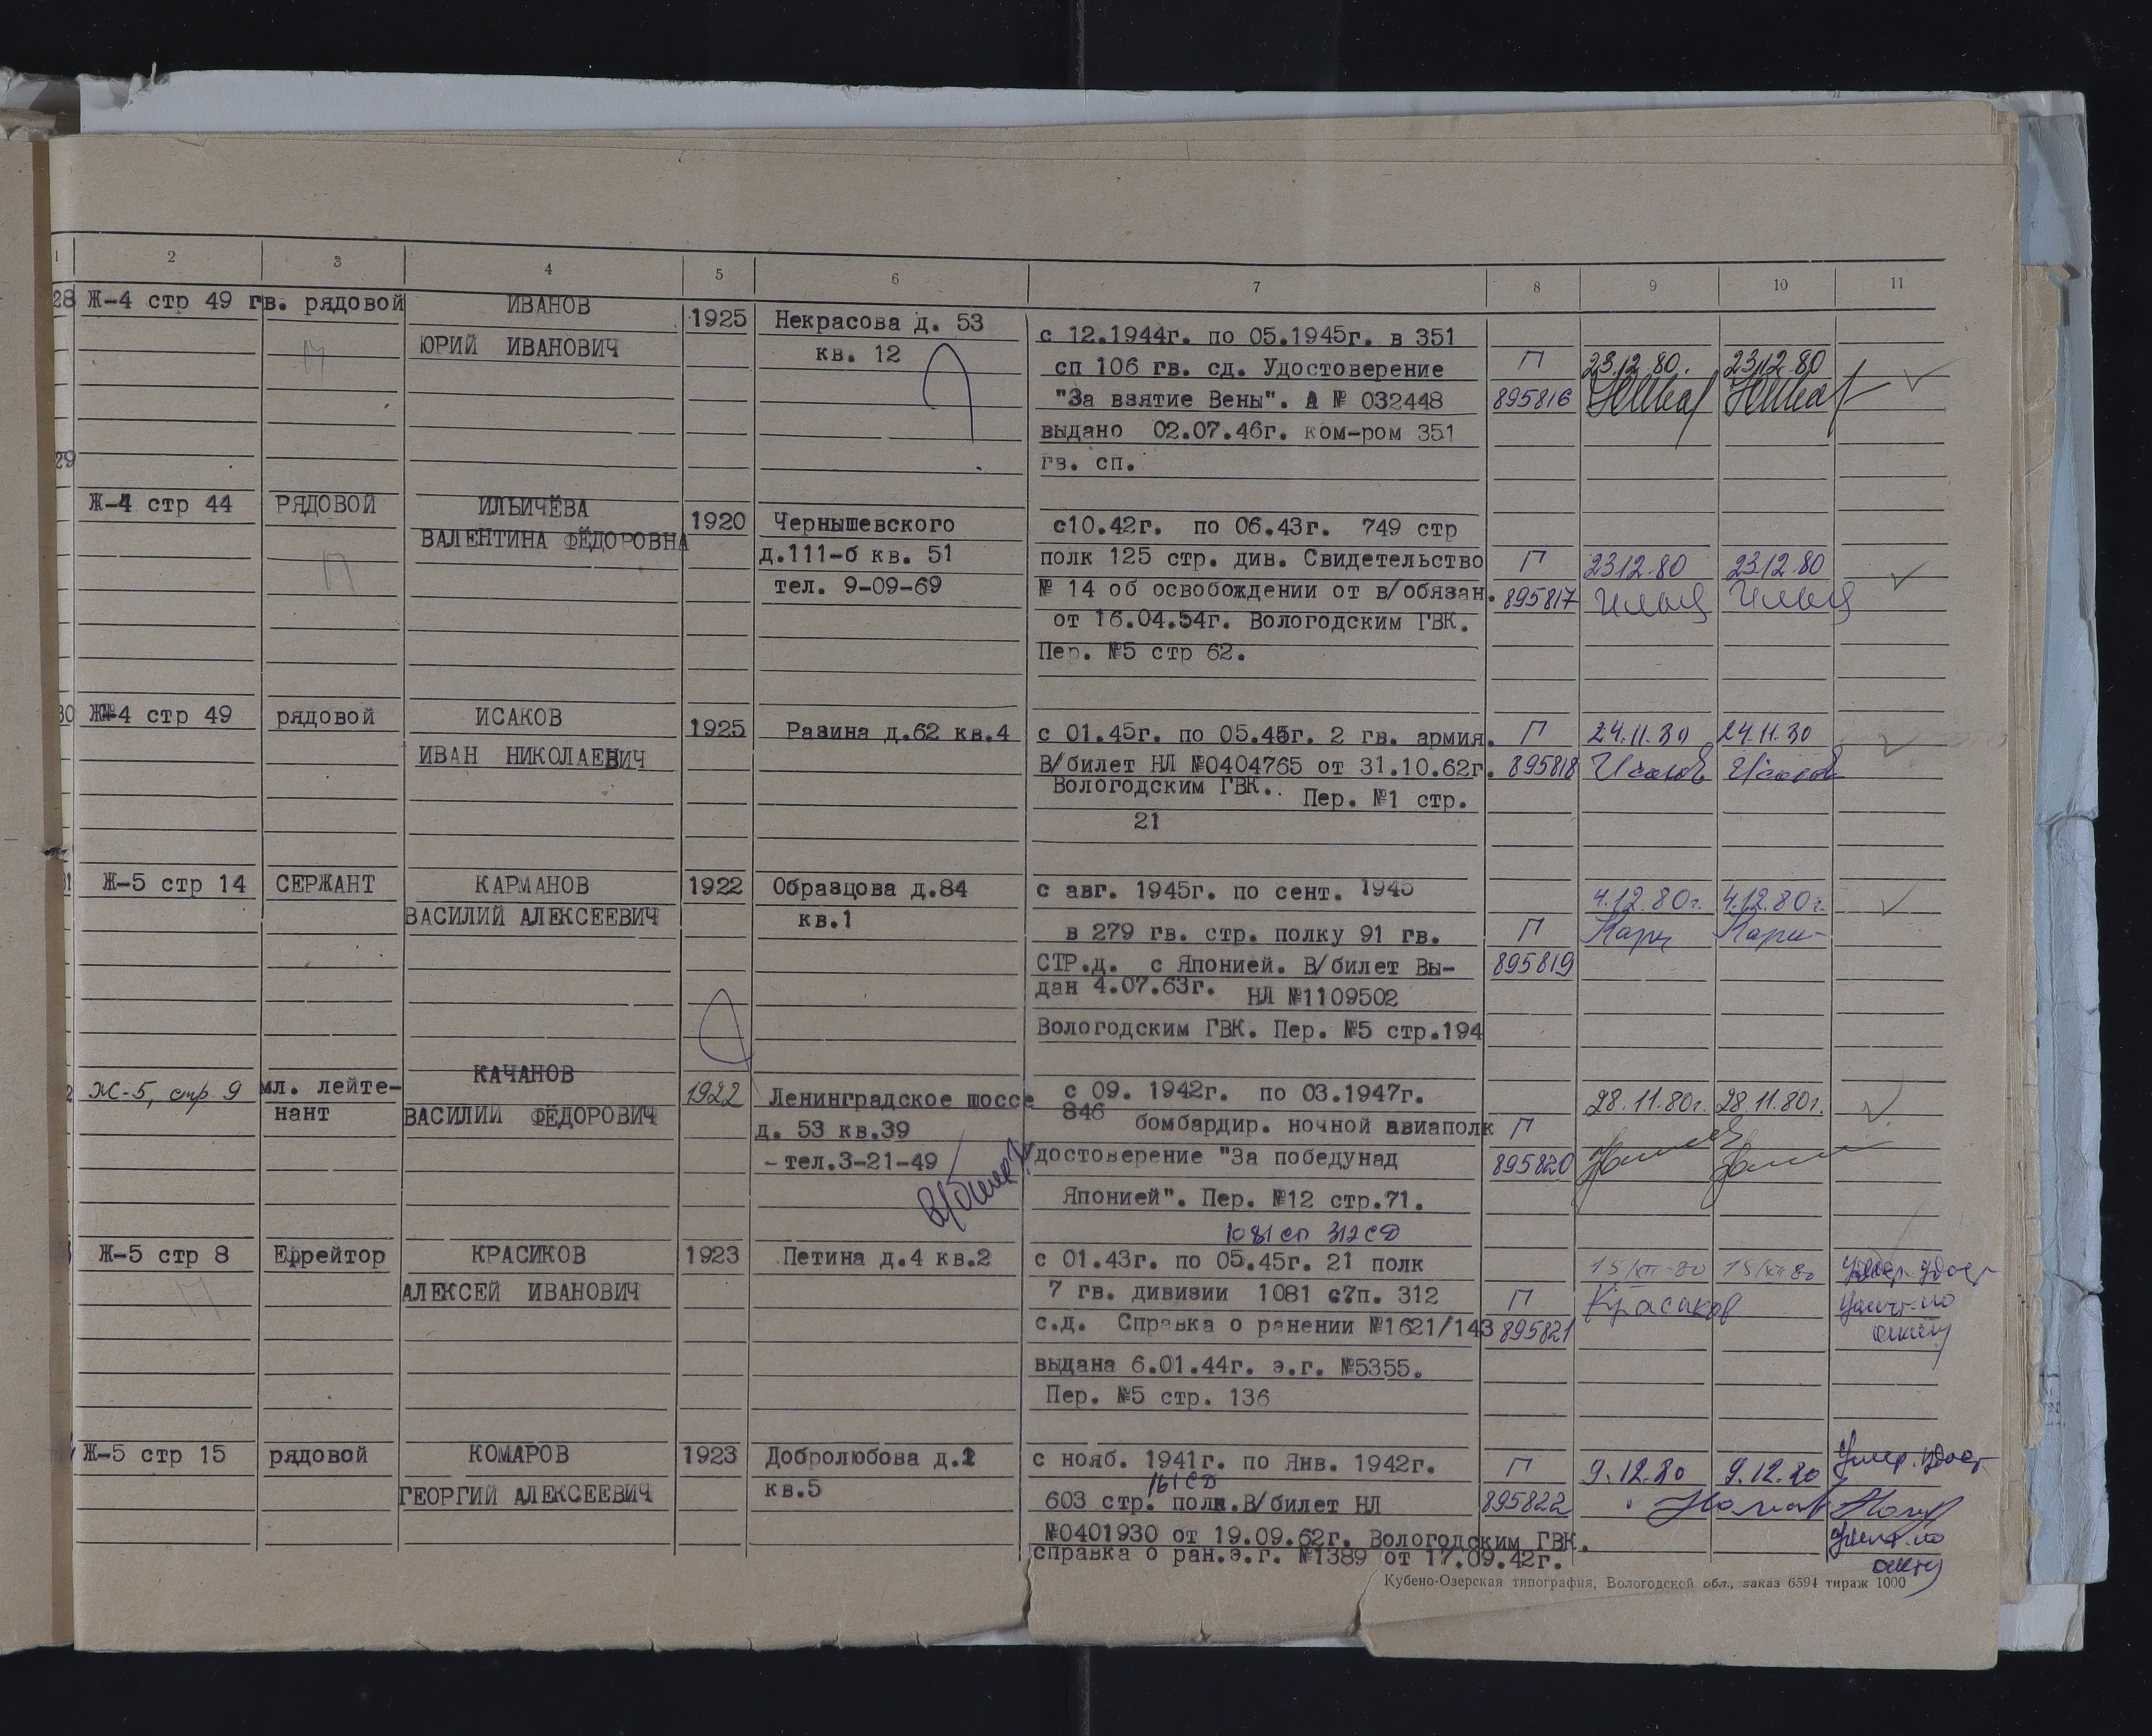 1 2 3 4 5 6 7 8 9 10 11
28 Ж-4 стр 49 гв. рядовой ИВАНОВ
ЮРИЙ ИВАНОВИЧ
1925 Некрасова д. 53
кв. 12
с 12.1944г. по 05.1945г. в 351
сп 106 гв. сд. Удостоверение
"За взятие Вены". А № 032448
выдано 02.07.46г. ком-ром 351
гв. сп.
П
895816
23.12.80. 23.12.80
29
Ж-4 стр 44 РЯДОВОЙ ИЛЬИЧЁВА
ВАЛЕНТИНА ФЁДОРОВНА
1920 Чернышевского
д.111-б кв. 51
тел. 9-09-69
с10.42г. по 06.43г. 749 стр
полк 125 стр. див. Свидетельство
№ 14 об освобождении от в/обязан.
от 16.04.54г. Вологодским ГВК.
Пер. №5 стр 62.
П
895817
23.12.80 23.12.80
30 Ж-4 стр 49 рядовой ИСАКОВ
ИВАН НИКОЛАЕВИЧ
1925 Разина д.62 кв.4
с 01.45г. по 05.45г. 2 гв. армия.
В/билет НЛ №0404765 от 31.10.62г.
Вологодским ГВК. Пер. №1 стр.
21
П
895818
24.11.80 24.11.80
Исаков Исаков
Ж-5 стр 14 СЕРЖАНТ КАРМАНОВ
ВАСИЛИЙ АЛЕКСЕЕВИЧ
1922 Образцова д.84
кв.1
с авг. 1945г. по сент. 1945
в 279 гв. стр. полку 91 гв.
СТР.д. с Японией. В/билет Вы-
дан 4.07.63г. НЛ №1109502
Вологодским ГВК. Пер. №5 стр.194
П
895819
4.12.80г. 4.12.80г.
Ж-5, стр. 9 мл. лейте-
нант
КАЧАНОВ
ВАСИЛИЙ ФЁДОРОВИЧ
1922 Ленинградское шоссе
д. 53 кв.39
-тел.3-21-49
с 09. 1942г. по 03.1947г.
846 бомбардир. ночной авиаполк
Удостоверение "За победунад
Японией". Пер. №12 стр.71.
П
895820
28.11.80г. 28.11.80г.
1081 сп 312 СД
Ж-5 стр 8 Ефрейтор КРАСИКОВ
АЛЕКСЕЙ ИВАНОВИЧ
1923 Петина д.4 кв.2
с 01.43г. по 05.45г. 21 полк
7 гв. дивизии 1081 с7п. 312
с.д. Справка о ранении №1621/143
выдана 6.01.44г. э.г. №5355.
Пер. №5 стр. 136
П
895821
15/XII-80 15/XII 80
Красиков
Ж-5 стр 15 рядовой КОМАРОВ
ГЕОРГИЙ АЛЕКСЕЕВИЧ
1923 Добролюбова д.1
кв.5
с нояб. 1941г. по Янв. 1942г.
161 СД
603 стр. полк.В/билет НЛ
№0401930 от 19.09.62г. Вологодским ГВК.
справка о ран.э.г. №1389 от 17.09.42г.
П
895822
9.12.80 9.12.80
Кубено-Озерская типография, Вологодской обл., заказ 6594 тираж 1000